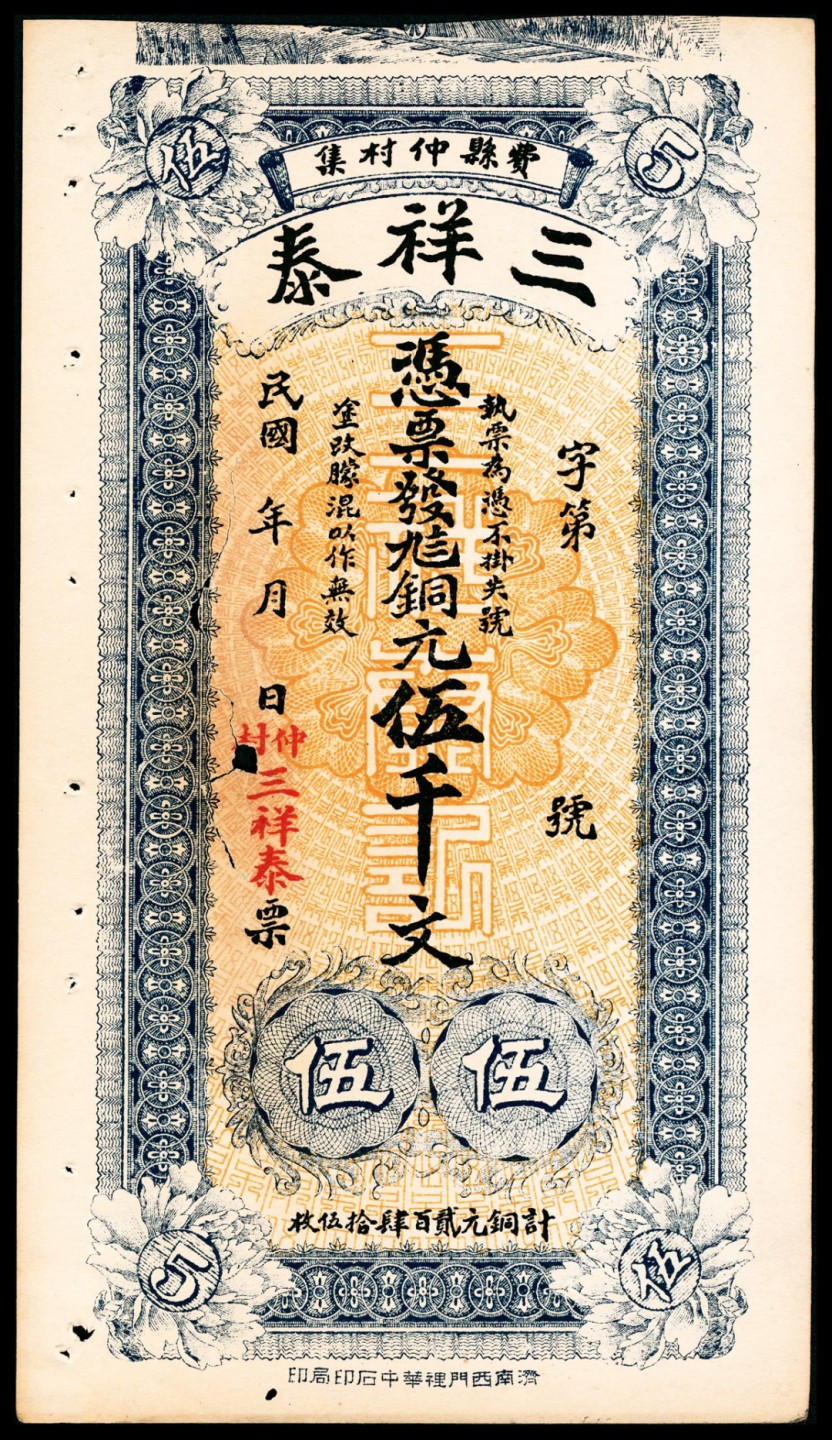 伍
5
費縣仲村集
三祥泰
字第 號
執票為憑不掛失號
憑票發銅元伍千文
塗改朦混以作無效
民國 年 月 日
仲村
三祥泰票
伍 伍
計銅元貳百肆拾伍枚
5
伍
濟南西門裡華中石印局印